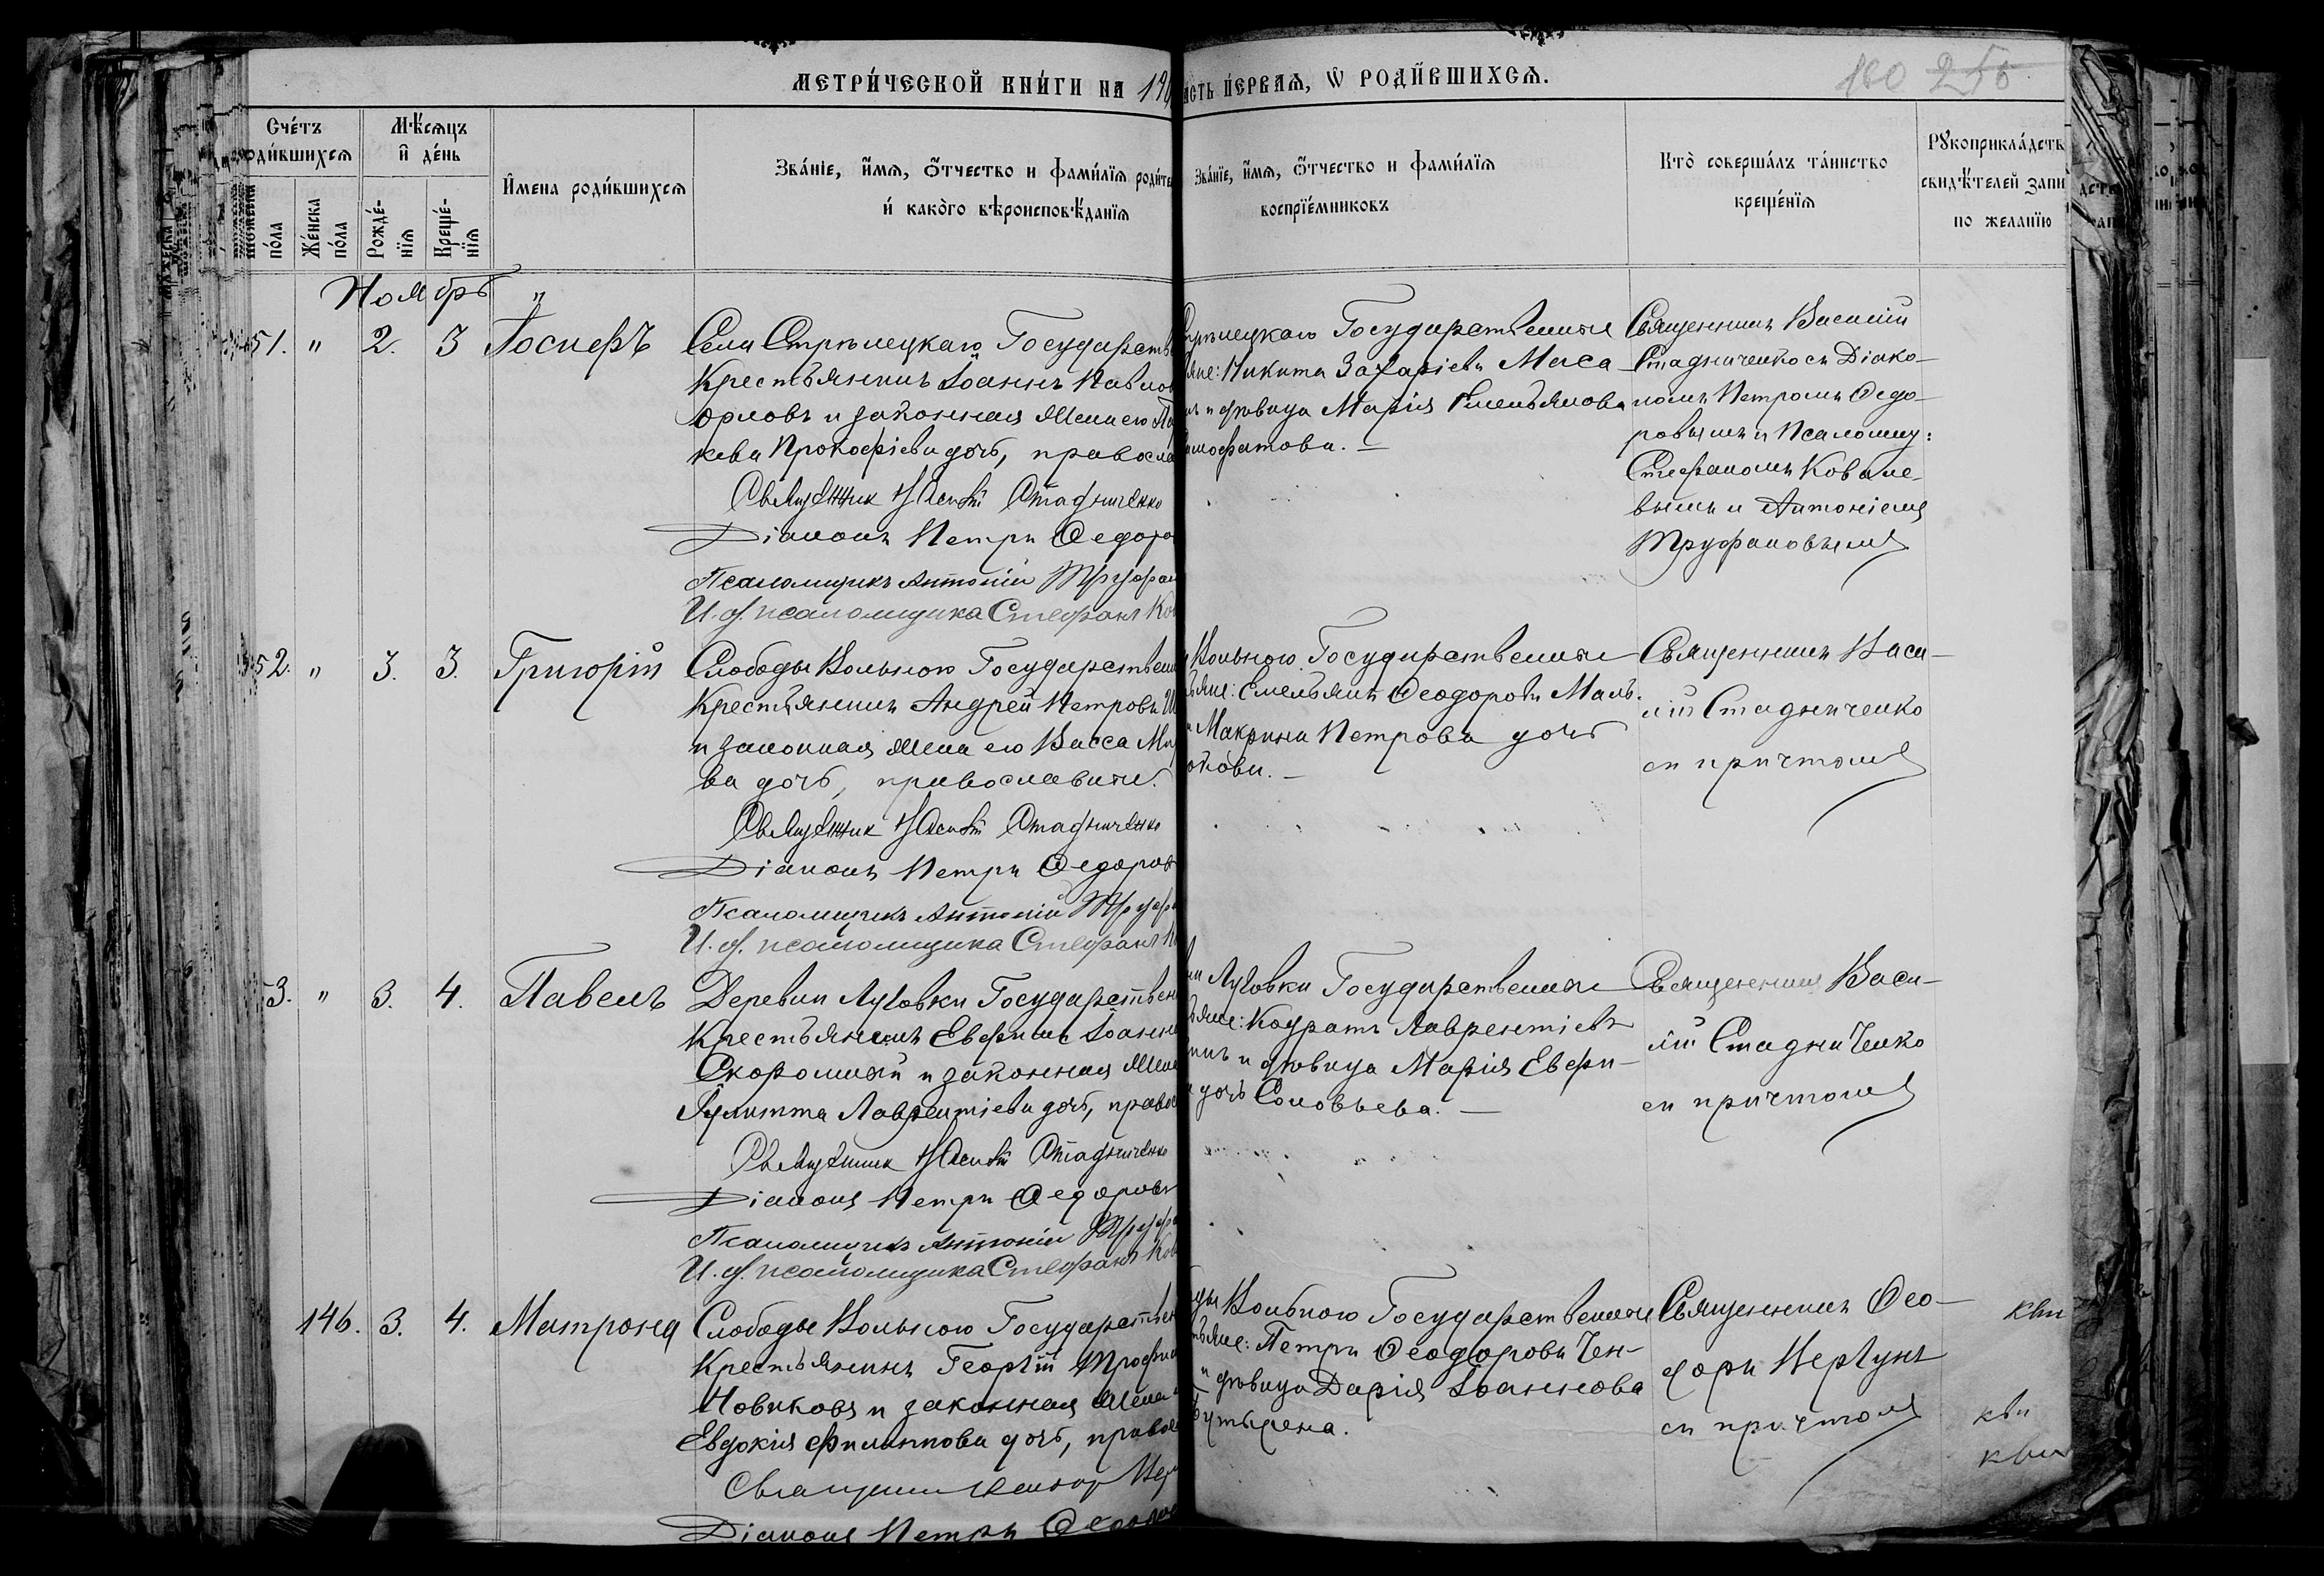 МЕТРИ́ЧЕСКОЙ КНИ́ГИ НА 190
ПЕ́РВАЯ, Ѡ РОДИ́ВШИХСЯ.
160 250
Счéтъ
роди́вшихся
Мѣ́сяцъ
и҆ дéнь
пóла
Жéнска
пóла
Рождé-
нїя
Крещé-
нїя
И҆мена роди́вшихся
Звáнїе, и҆мя, ѻ҆тчество и фами́лїя
и҆ какóго вѣроисповѣ́данїя
Звáнїе, и҆мя, ѻ҆тчество и фами́лїя
воспрїéмниковъ
Кто̀ совершáлъ тáинство
крещéнїя
Рꙋкоприклáдст
свидѣ́телей запи
по желанїю
Ноябрь
51. " 2. 3 Іосифъ
Села Стрѣлецкаго Государств
Крестьянинъ Іоаннъ Павлов
Орловъ и законная жена его
кева Прокофіева дочь, правосла
Священник Василій Стадниченко
Діаконъ Петръ Ѳедоро
Псаломщикъ Антоній Труфан
И. д. псаломщика Стефанъ Ко
Стрѣлецкаго Государственные
Никита Захаріевъ Маса-
и дѣвица Марія Емельянова
Священникъ Василій
Стадниченко съ Діако-
номъ Петромъ Ѳедо-
ровымъ и Псаломщ:
Стефаномъ Ковале-
вымъ и Антоніемъ
Труфановымъ
52. " 3. 3. Григорій
Слободы Вольного Государствен
Крестьянинъ Андрей Петровъ
и законная жена его Васса
ва дочь, православные.
Священник Василій Стадниченко
Діаконъ Петръ Ѳедоров
Псаломщикъ Антоній Труфа
И. д. псаломщика Стефанъ
Вольного Государственные
Емельянъ Ѳеодоровъ Маль-
Макрина Петрова дочь
Священникъ Васи-
лій Стадниченко
съ причтомъ
53. " 3. 4. Павелъ
Деревни Луговки Государствен
Крестьянинъ Евфимъ Іоанно
Скоромный и законная жена
Іулитта Лаврентіева дочь, право
Священник Василій Стадниченко
Діаконъ Петръ Ѳедоровъ
Псаломщикъ Антоній Труфа
И. д. псаломщика Стефанъ Ков
Луговки Государственные
Кодратъ Лаврентіевъ
и дѣвица Марія Евфи-
дочь Соловьева.
Священникъ Васи-
лій Стадниченко
съ причтомъ
146. 3. 4. Матрона
Слободы Вольного Государствен
Крестьянинъ Георгій Трофим
Новиковъ и законная жена
Евдокія Филиппова дочь, право
Діаконъ Петръ Ѳедоров
Вольного Государственные
Петръ Ѳеодоровъ Чен-
и дѣвица Дарія Іоаннова
Священникъ Ѳео-
доръ Вергунъ
съ причтомъ